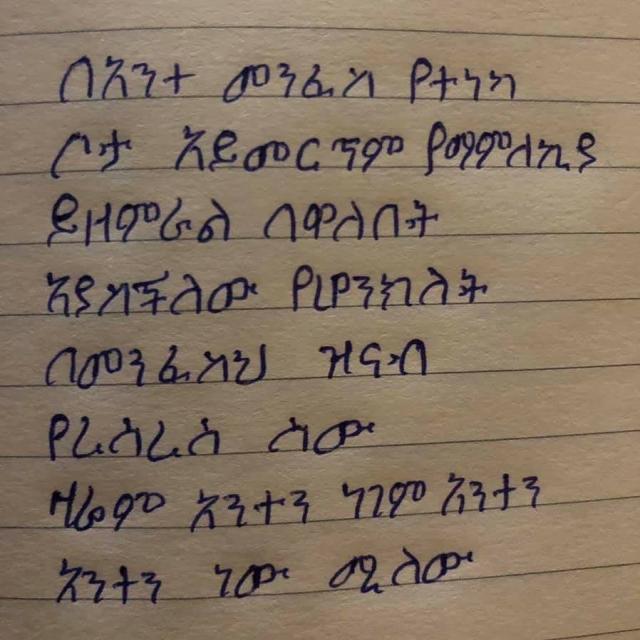 በአንተ መንፈስ የተነካ
ቦታ አይመርጥም የማምለኪያ
ይዘምራል በዋለበት
አያስችለው የሆንክለት
በመንፈስህ ዝናብ
የረሰረሰ ሰው
ዛሬም አንተን ነገም አንተን
አንተን ነው ሚለው